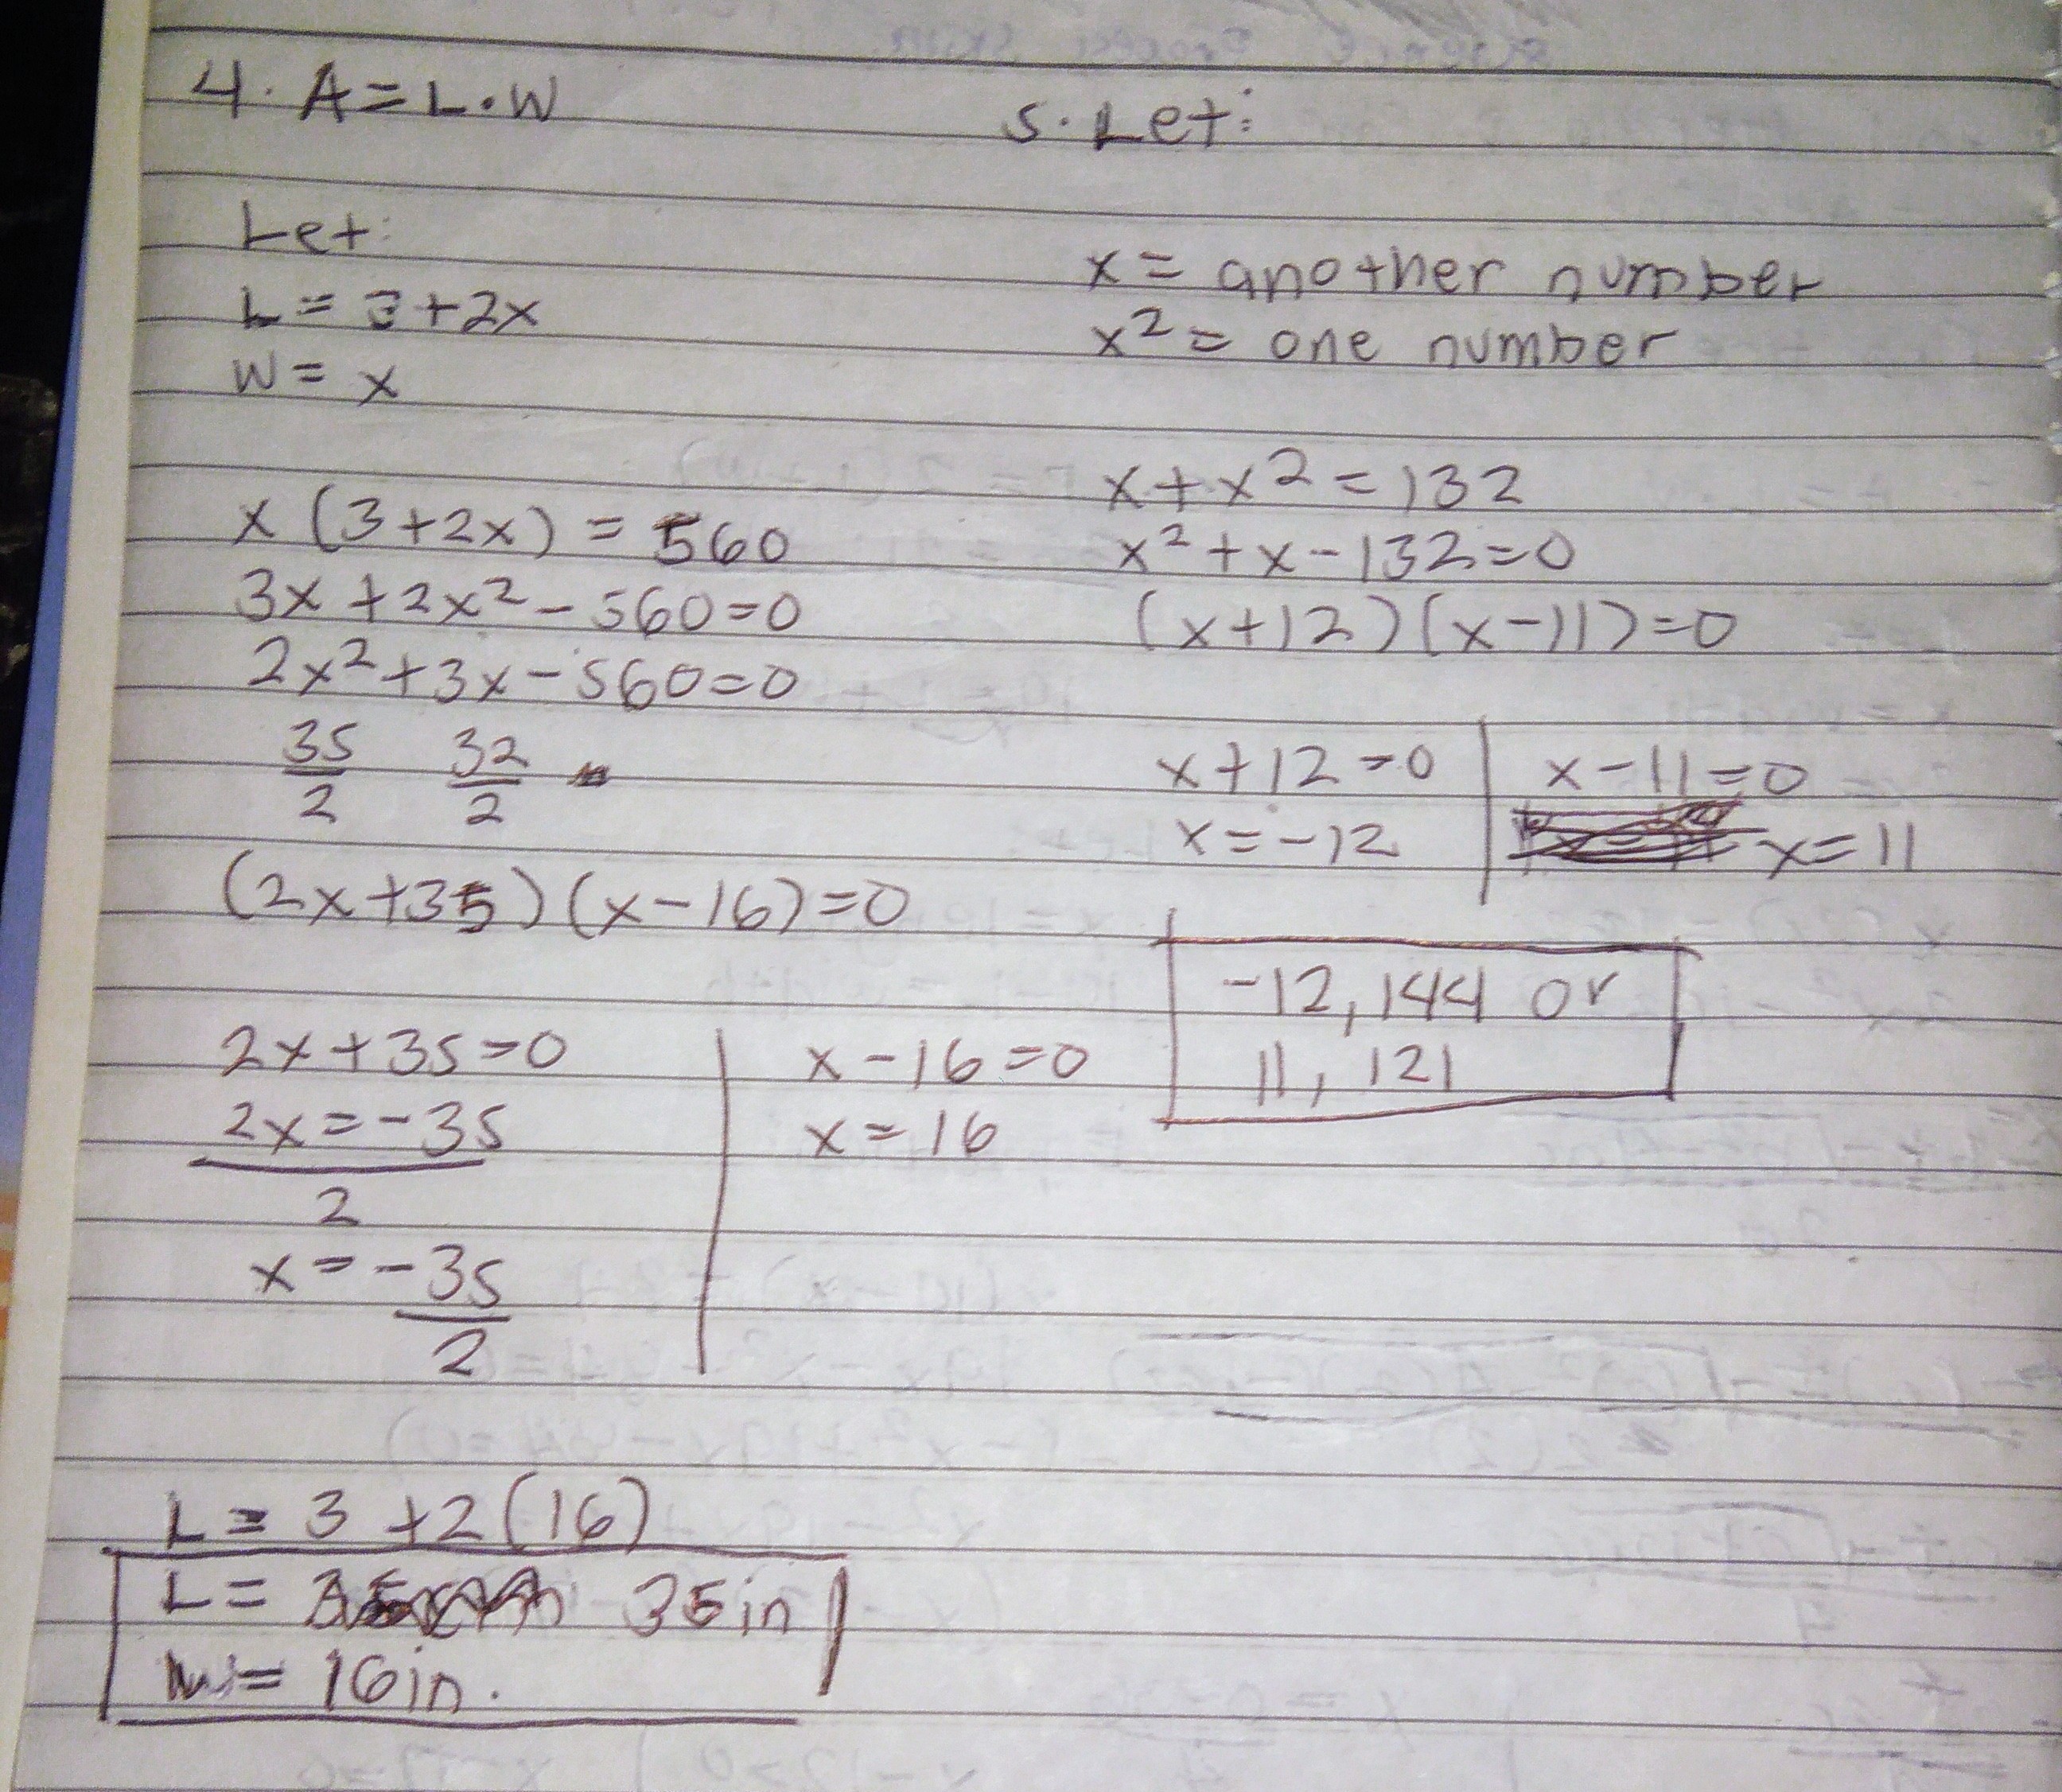 4. A = L · W
Let:
L = 3 + 2x
W = x
x (3 + 2x) = 560
3x + 2x² - 560 = 0
2x² + 3x - 560 = 0
35/2 32/2
(2x + 35) (x - 16) = 0
2x + 35 = 0 | x - 16 = 0
2x = -35 | x = 16
2
x = -35/2
L = 3 + 2 (16)
L = 35 in
W = 16 in.
5. Let:
x = another number
x² = one number
x + x² = 132
x² + x - 132 = 0
(x + 12) (x - 11) = 0
x + 12 = 0 | x - 11 = 0
x = -12 | x = 11
-12, 144 or
11, 121